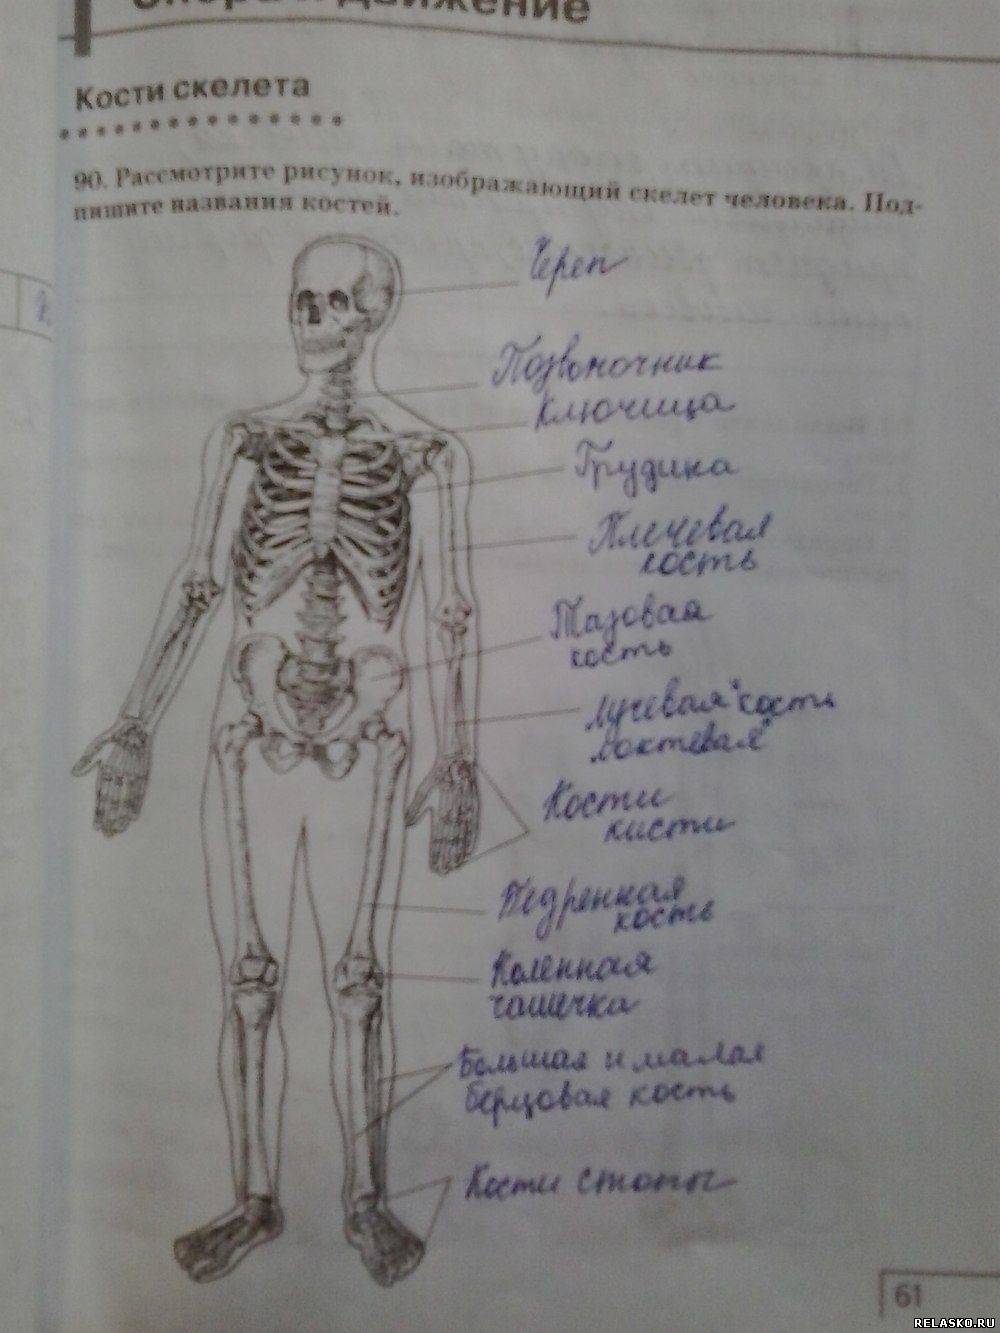 Опора и движение
Кости скелета
90. Рассмотрите рисунок, изображающий скелет человека. Под-
пишите названия костей.
Череп
Позвоночник
Ключица
Грудина
Плечевая
кость
Тазовая
кость
лучевая "кость
локтевая"
Кости
кисти
Бедренная
кость
Коленная
чашечка
Большая и малая
берцовая кость
Кости стопы
61
RELASKO.RU